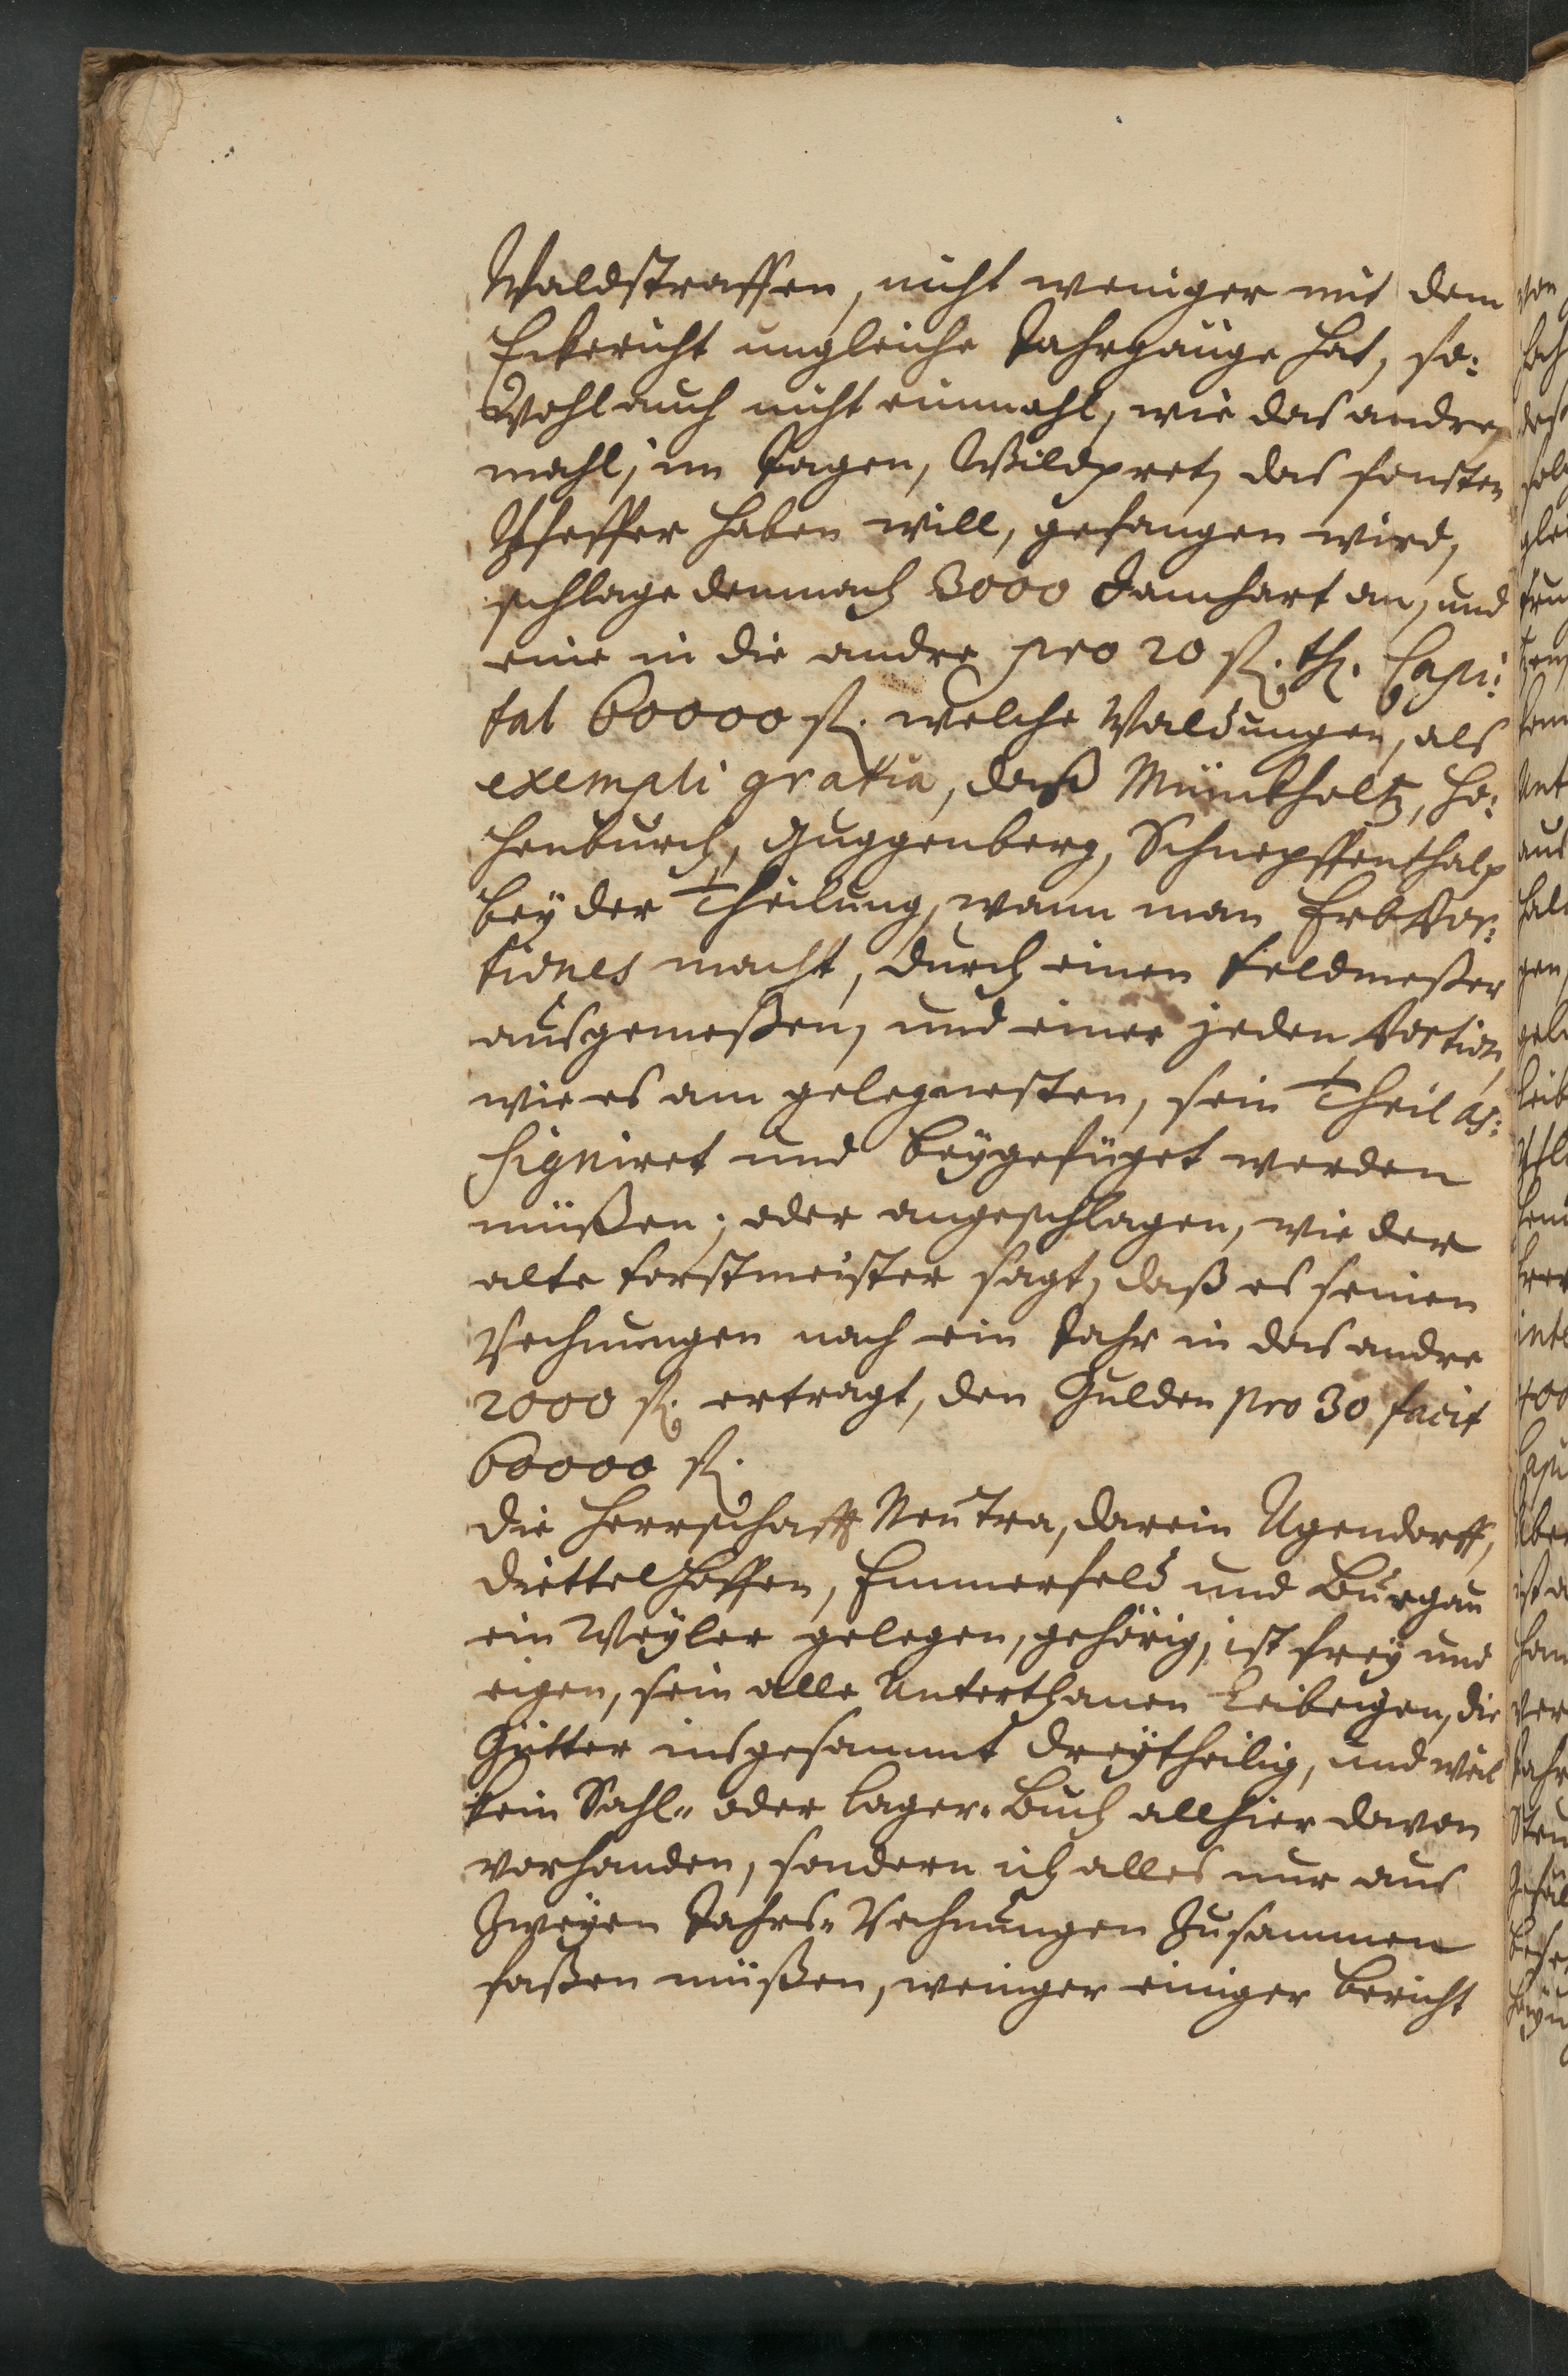 Waldstraffen, nicht weniger mit dem
Eckericht ungleiche Jahrgänge hat, so:
Wohl auch nicht einmahl, wie das andre
mahl, im Jagen, Wildpret, das sonsten
Pfeffer haben will, gefangen wird,
schlage demnach 3000 Jauchart an, und
eine in die andre pro 20 fl. th. Capi:
tal 60000 fl. welche Waldungen, als
exempli gratia, daß Münkholtz, Ho:
henburch, Guggenberg, Schnepffenthalp
bey der Theilung, wann man Erb Por:
tiones macht, durch einen Feldmeßer
ausgemeßen, und einer jeden Portion,
wie es am gelegnesten, sein Theil as:
signiret und beygefüget werden
müßen; oder angeschlagen, wie der
alte Forstmeister sagt, daß es seinen
Rechnungen nach ein Jahr in das andre
2000 fl. ertragt, den Gulden pro 30 facit
60000 fl.
Die Herrschafft Neutra, darein Ugendorff,
Diettelhoffen, Emmerfeld und Burgau
ein Weyler gelegen, gehörig, ist frey und
eigen, sein alle Unterthanen Leibeigen, die
Gütter insgesammt dreytheilig, und weil
kein Sahl- oder Lager-Buch allhier davon
vorhanden, sondern ich alles nur aus
Zweyen Jahrs-Rechnungen Zusammen
faßen müßen, weniger einiger Bericht